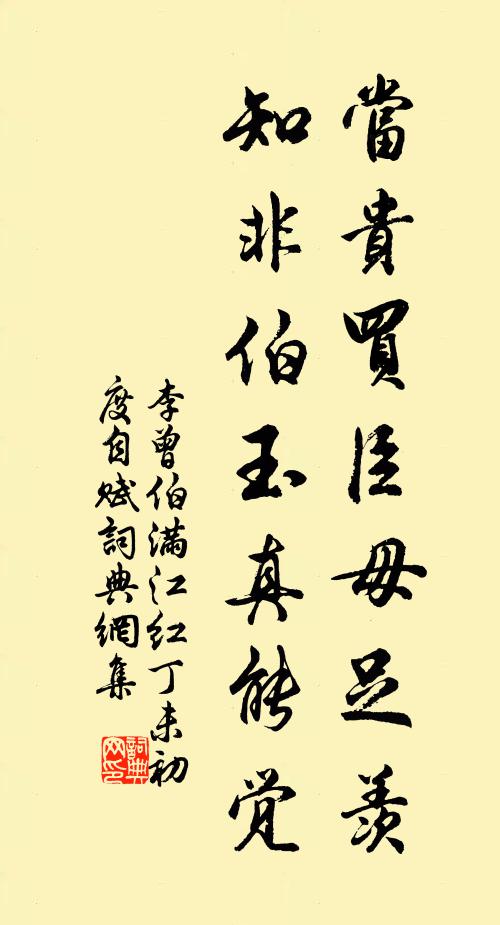 當貴買臣毋足羨
知非伯玉真能覺
李曾伯滿江紅丁未初
度自賦詞典網集
詞典
网印